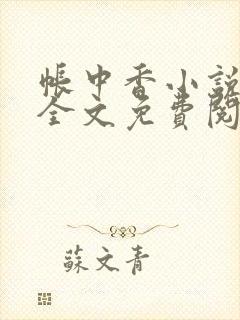 帳中香小說
全文免費閱
蘇文青